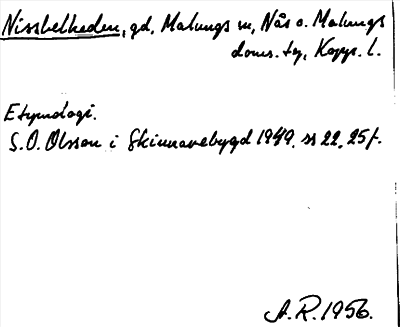 Nissbelheden, gd, Malungs sn, Nås o. Malungs
doms. tg, Kopp. l.
Etymologi.
S.O. Olsson i Skinnarebygd 1949. ss 22, 25f.
A.R. 1956.